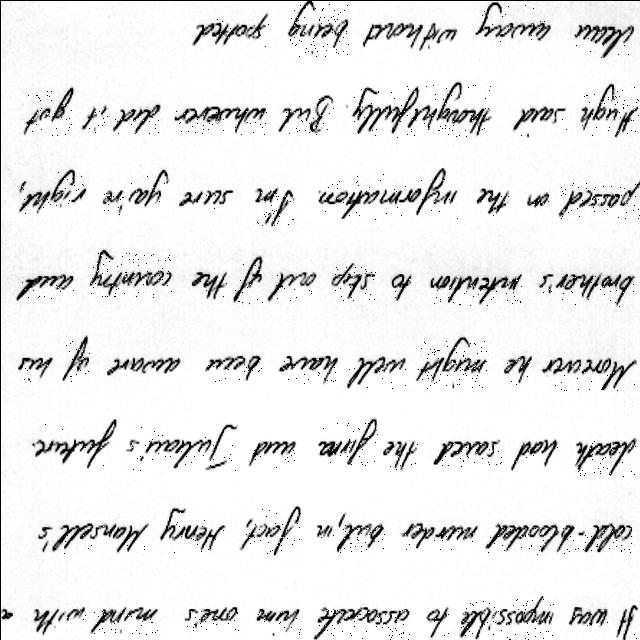 It way impossible to associate him one's mind with a
cold-blooded murder but, in fact, Henry Mansell's
death had saved the firm and Julian's future.
Moreover he might well have been aware of his
brother's intention to slip out of the country and
passed on the information. I'm sure you're right,
Hugh said thoughtfully. But whoever did it got
clean away without being spotted